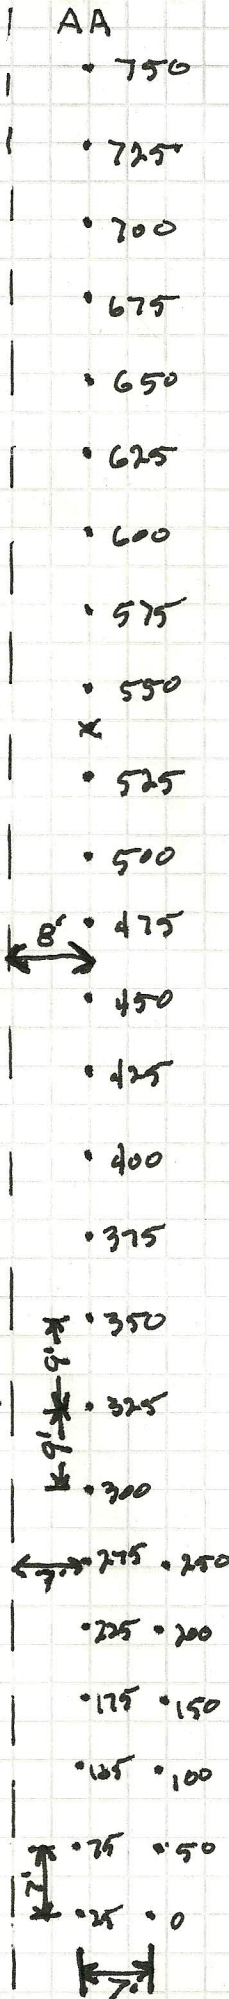 AA
750
725
700
675
650
625
600
575
550
x
525
500
475
8'
450
425
400
375
350
9'
325
9'
300
7' 275 250
225 200
175 150
125 100
75 50
7'
25 0
7'